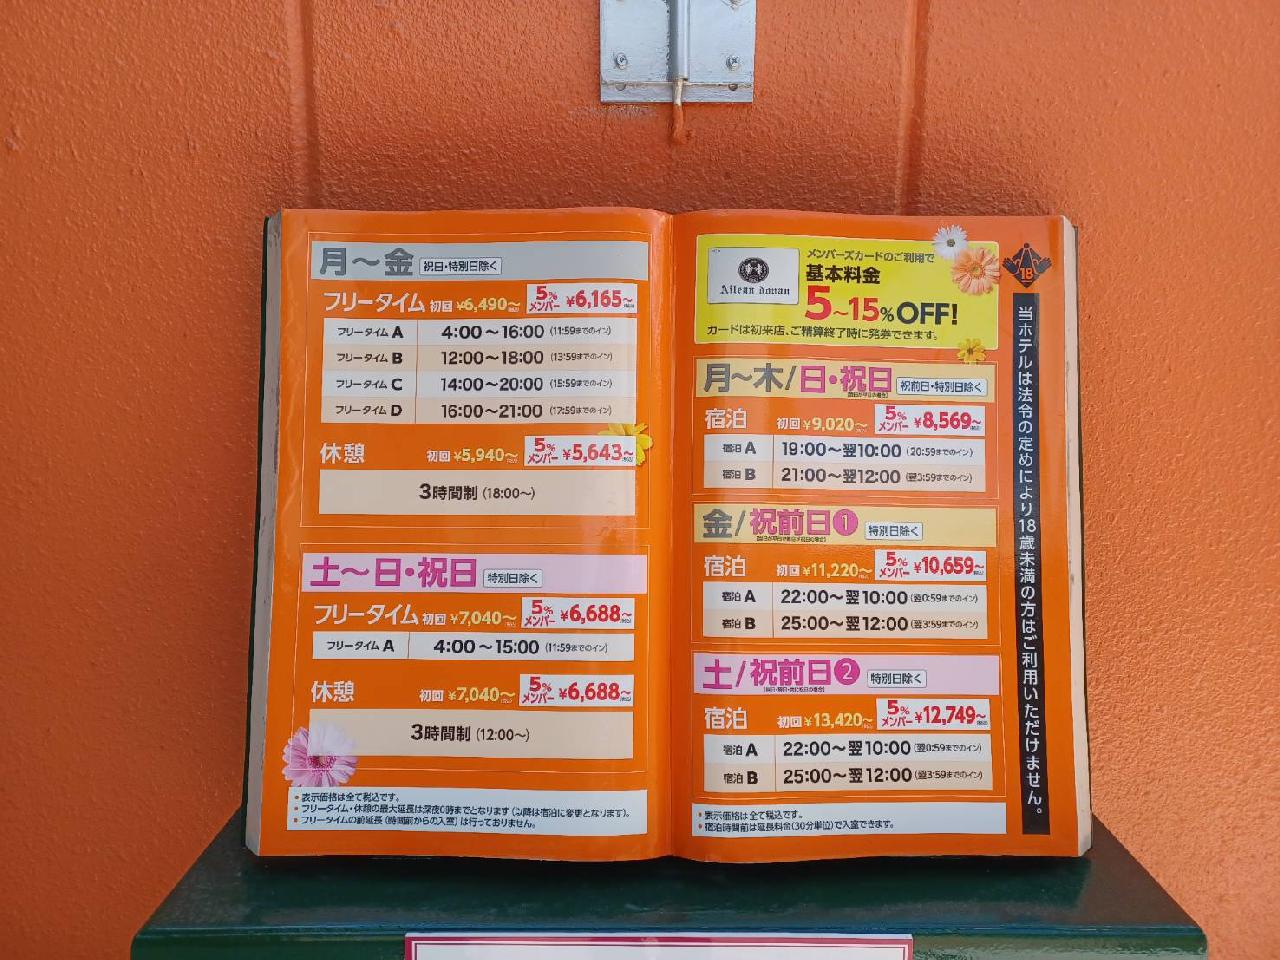 月～金 祝日・特別日除く
フリータイム 初回 ¥6,490～ 5%メンバー ¥6,165～
フリータイム A 4:00～16:00 (11:59までのイン)
フリータイム B 12:00～18:00 (13:59までのイン)
フリータイム C 14:00～20:00 (15:59までのイン)
フリータイム D 16:00～21:00 (17:59までのイン)
休憩 初回 ¥5,940～ 5%メンバー ¥5,643～
3時間制 (18:00～)
土～日・祝日 特別日除く
フリータイム 初回 ¥7,040～ 5%メンバー ¥6,688～
フリータイム A 4:00～15:00 (11:59までのイン)
休憩 初回 ¥7,040～ 5%メンバー ¥6,688～
3時間制 (12:00～)
・表示価格は全て税込です。
・フリータイム・休憩の最大延長は深夜0時までとなります(以降は宿泊に変更となります)。
・フリータイムの前延長(時間前からの入室)は行っておりません。
メンバーズカードのご利用で
基本料金
5～15%OFF!
カードは初来店、ご精算終了時に発券できます。
月～木/日・祝日 祝前日・特別日除く
宿泊 初回 ¥9,020～ 5%メンバー ¥8,569～
宿泊 A 19:00～翌10:00 (20:59までのイン)
宿泊 B 21:00～翌12:00 (翌3:59までのイン)
金/祝前日❶ 特別日除く
宿泊 初回 ¥11,220～ 5%メンバー ¥10,659～
宿泊 A 22:00～翌10:00 (翌0:59までのイン)
宿泊 B 25:00～翌12:00 (翌3:59までのイン)
土/祝前日❷ 特別日除く
宿泊 初回 ¥13,420～ 5%メンバー ¥12,749～
宿泊 A 22:00～翌10:00 (翌0:59までのイン)
宿泊 B 25:00～翌12:00 (翌3:59までのイン)
・表示価格は全て税込です。
・宿泊時間前は延長料金(30分単位)で入室できます。
18
当ホテルは法令の定めにより18歳未満の方はご利用いただけません。